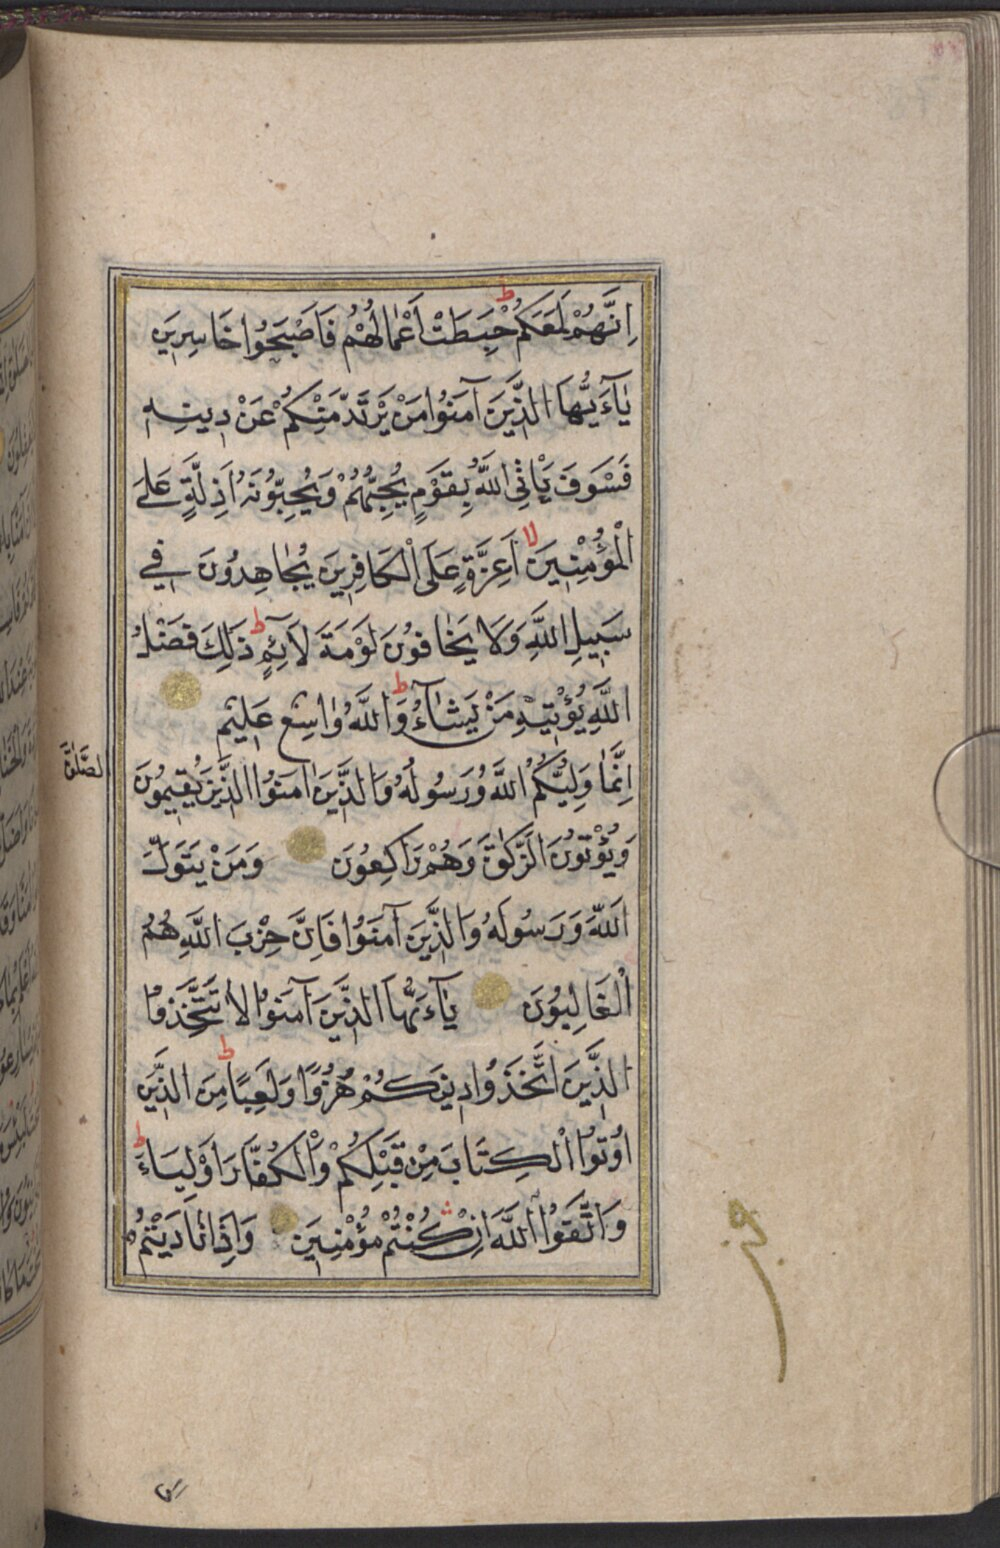 اِنَّهُمْ لَمَعَكُمْ ط حَبِطَتْ اَعْمَالُهُمْ فَاَصْبَحُوا خَاسِرِينَ
يَآءَيُّهَا الَّذِينَ آمَنُوا مَنْ يَرْتَدَّ مِنْكُمْ عَنْ دِينِهِ
فَسَوْفَ يَأْتِي اللَّهُ بِقَوْمٍ يُحِبُّهُمْ وَيُحِبُّونَهُ اَذِلَّةٍ عَلَى
الْمُؤْمِنِينَ لا اَعِزَّةٍ عَلَى الْكَافِرِينَ يُجَاهِدُونَ فِي
سَبِيلِ اللَّهِ وَلَا يَخَافُونَ لَوْمَةَ لَآئِمٍ ط ذَلِكَ فَضْلُ
اللَّهِ يُؤْتِيهِ مَنْ يَشَآءُ ط وَاللَّهُ وَاسِعٌ عَلِيمٌ
اِنَّمَا وَلِيُّكُمُ اللَّهُ وَرَسُولُهُ وَالَّذِينَ اٰمَنُوا الَّذِينَ يُقِيمُونَ
الصَّلٰوةَ
وَيُؤْتُونَ الزَّكٰوةَ وَهُمْ رَاكِعُونَ وَمَنْ يَتَوَلَّ
اللَّهَ وَرَسُولَهُ وَالَّذِينَ آمَنُوا فَاِنَّ حِزْبَ اللَّهِ هُمُ
الْغَالِبُونَ يَآءَيُّهَا الَّذِينَ آمَنُوا لَا تَتَّخِذُوا
الَّذِينَ اتَّخَذُوا دِينَكُمْ هُزُوًا وَلَعِبًا ط مِنَ الَّذِينَ
اُوتُوا الْكِتَابَ مِنْ قَبْلِكُمْ وَالْكُفَّارَ اَوْلِيَآءَ ط
وَاتَّقُوا اللَّهَ اِنْ كُنْتُمْ مُؤْمِنِينَ وَاِذَا نَادَيْتُمْ
حزب